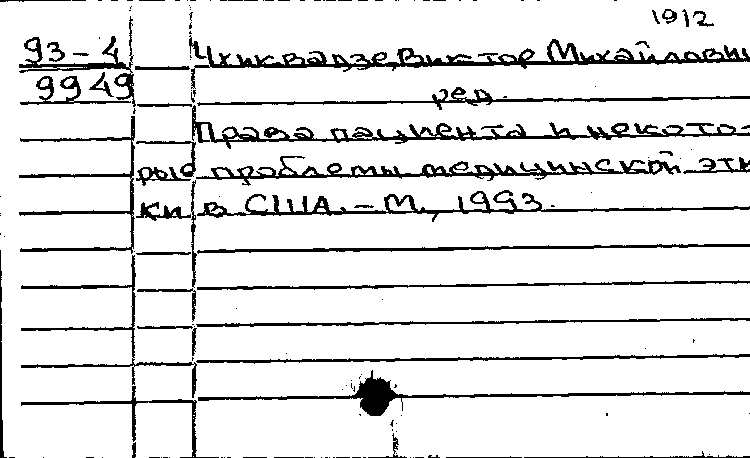 1912
93-4 Чхиквадзе, Виктор Михайлови
9949
ред.
Права пациента и некото-
рые проблемы медицинской эти
ки в США. - М., 1993.